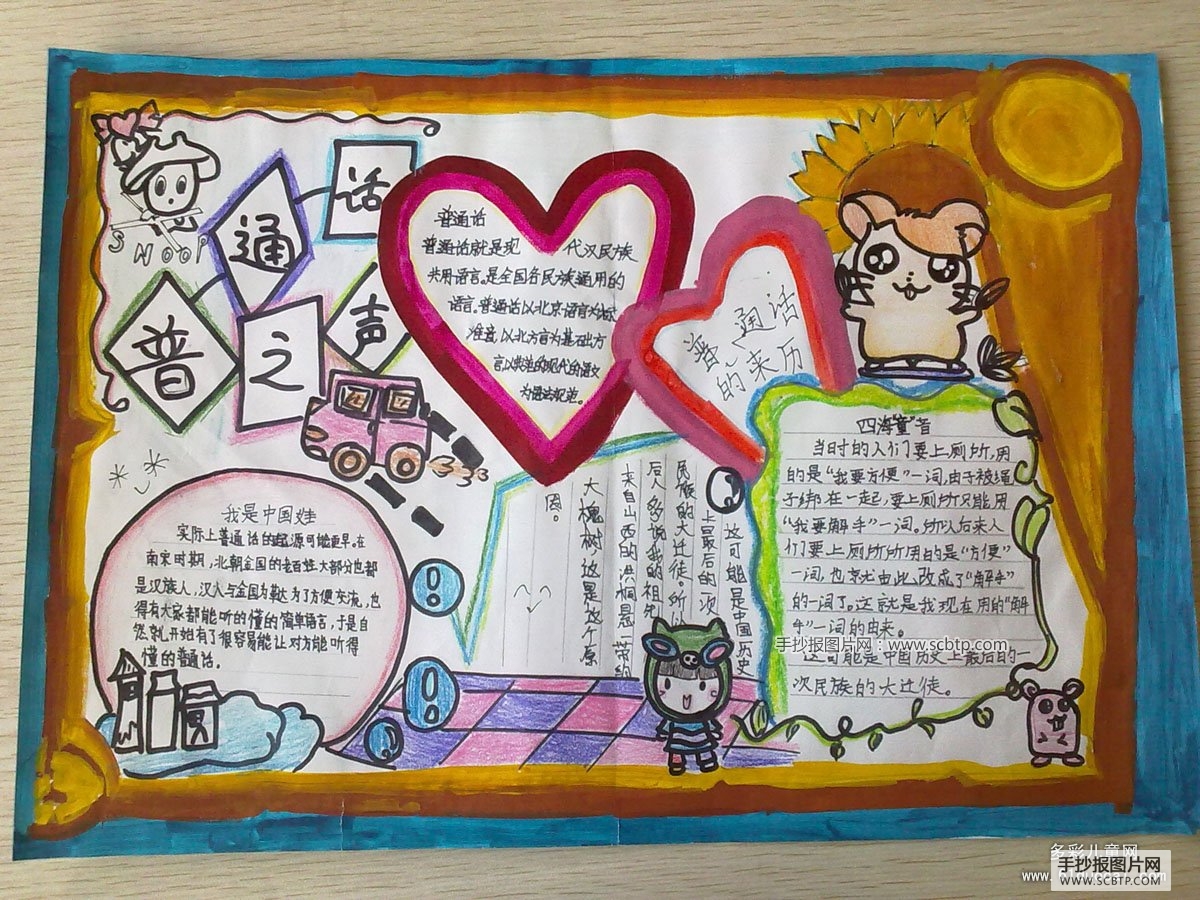 普通话之声
SNOOP
普通话
普通话就是现 代汉民族
共用语言。是全国各民族通用的
语言。普通话以北京语音为标
准音,以北方言为基础方
言以典范的现代的语文
为语法规范。
普通话
的来历
我是中国娃
实际上普通话的起源可能更早。在
南宋时期,北朝金国的老百姓大部分也都
是汉族人,汉人与金国为勒达为了方便交流,也
得有大家都能听的懂的简单语言,于是自
然就开始有了很容易能让对方能听得
懂的普通话。
这可能是中国历史
上最后的一次
民族的大迁徙。所以
后人多说我的祖先
来自山西的洪桐县一带的
大槐树这是这个原
因。
四海 音
当时的人们要上厕所,用
的是“我要方便”一词,由于被绳
子绑在一起,要上厕所只能用
“我要解手”一词。所以后来人
们要上厕所所用的是“方便”
一词,也就由此改成了“解手”
的一词了。这就是我现在用的“解
手”一词的由来。
这可能是中国历史上最后的一
次民族的大迁徙。
手抄报图片网:www.scbtp.com
多彩儿童网
手抄报图片网
WWW.SCBTP.COM